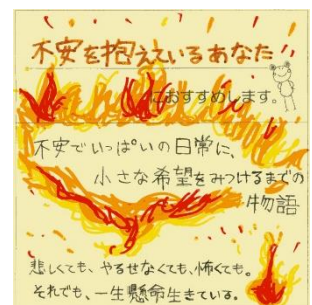 不安を抱えているあなた
におすすめします。
不安でいっぱいの日常に、
小さな希望をみつけるまでの
物語
悲しくても、やるせなくても、怖くても。
それでも、一生懸命生きている。